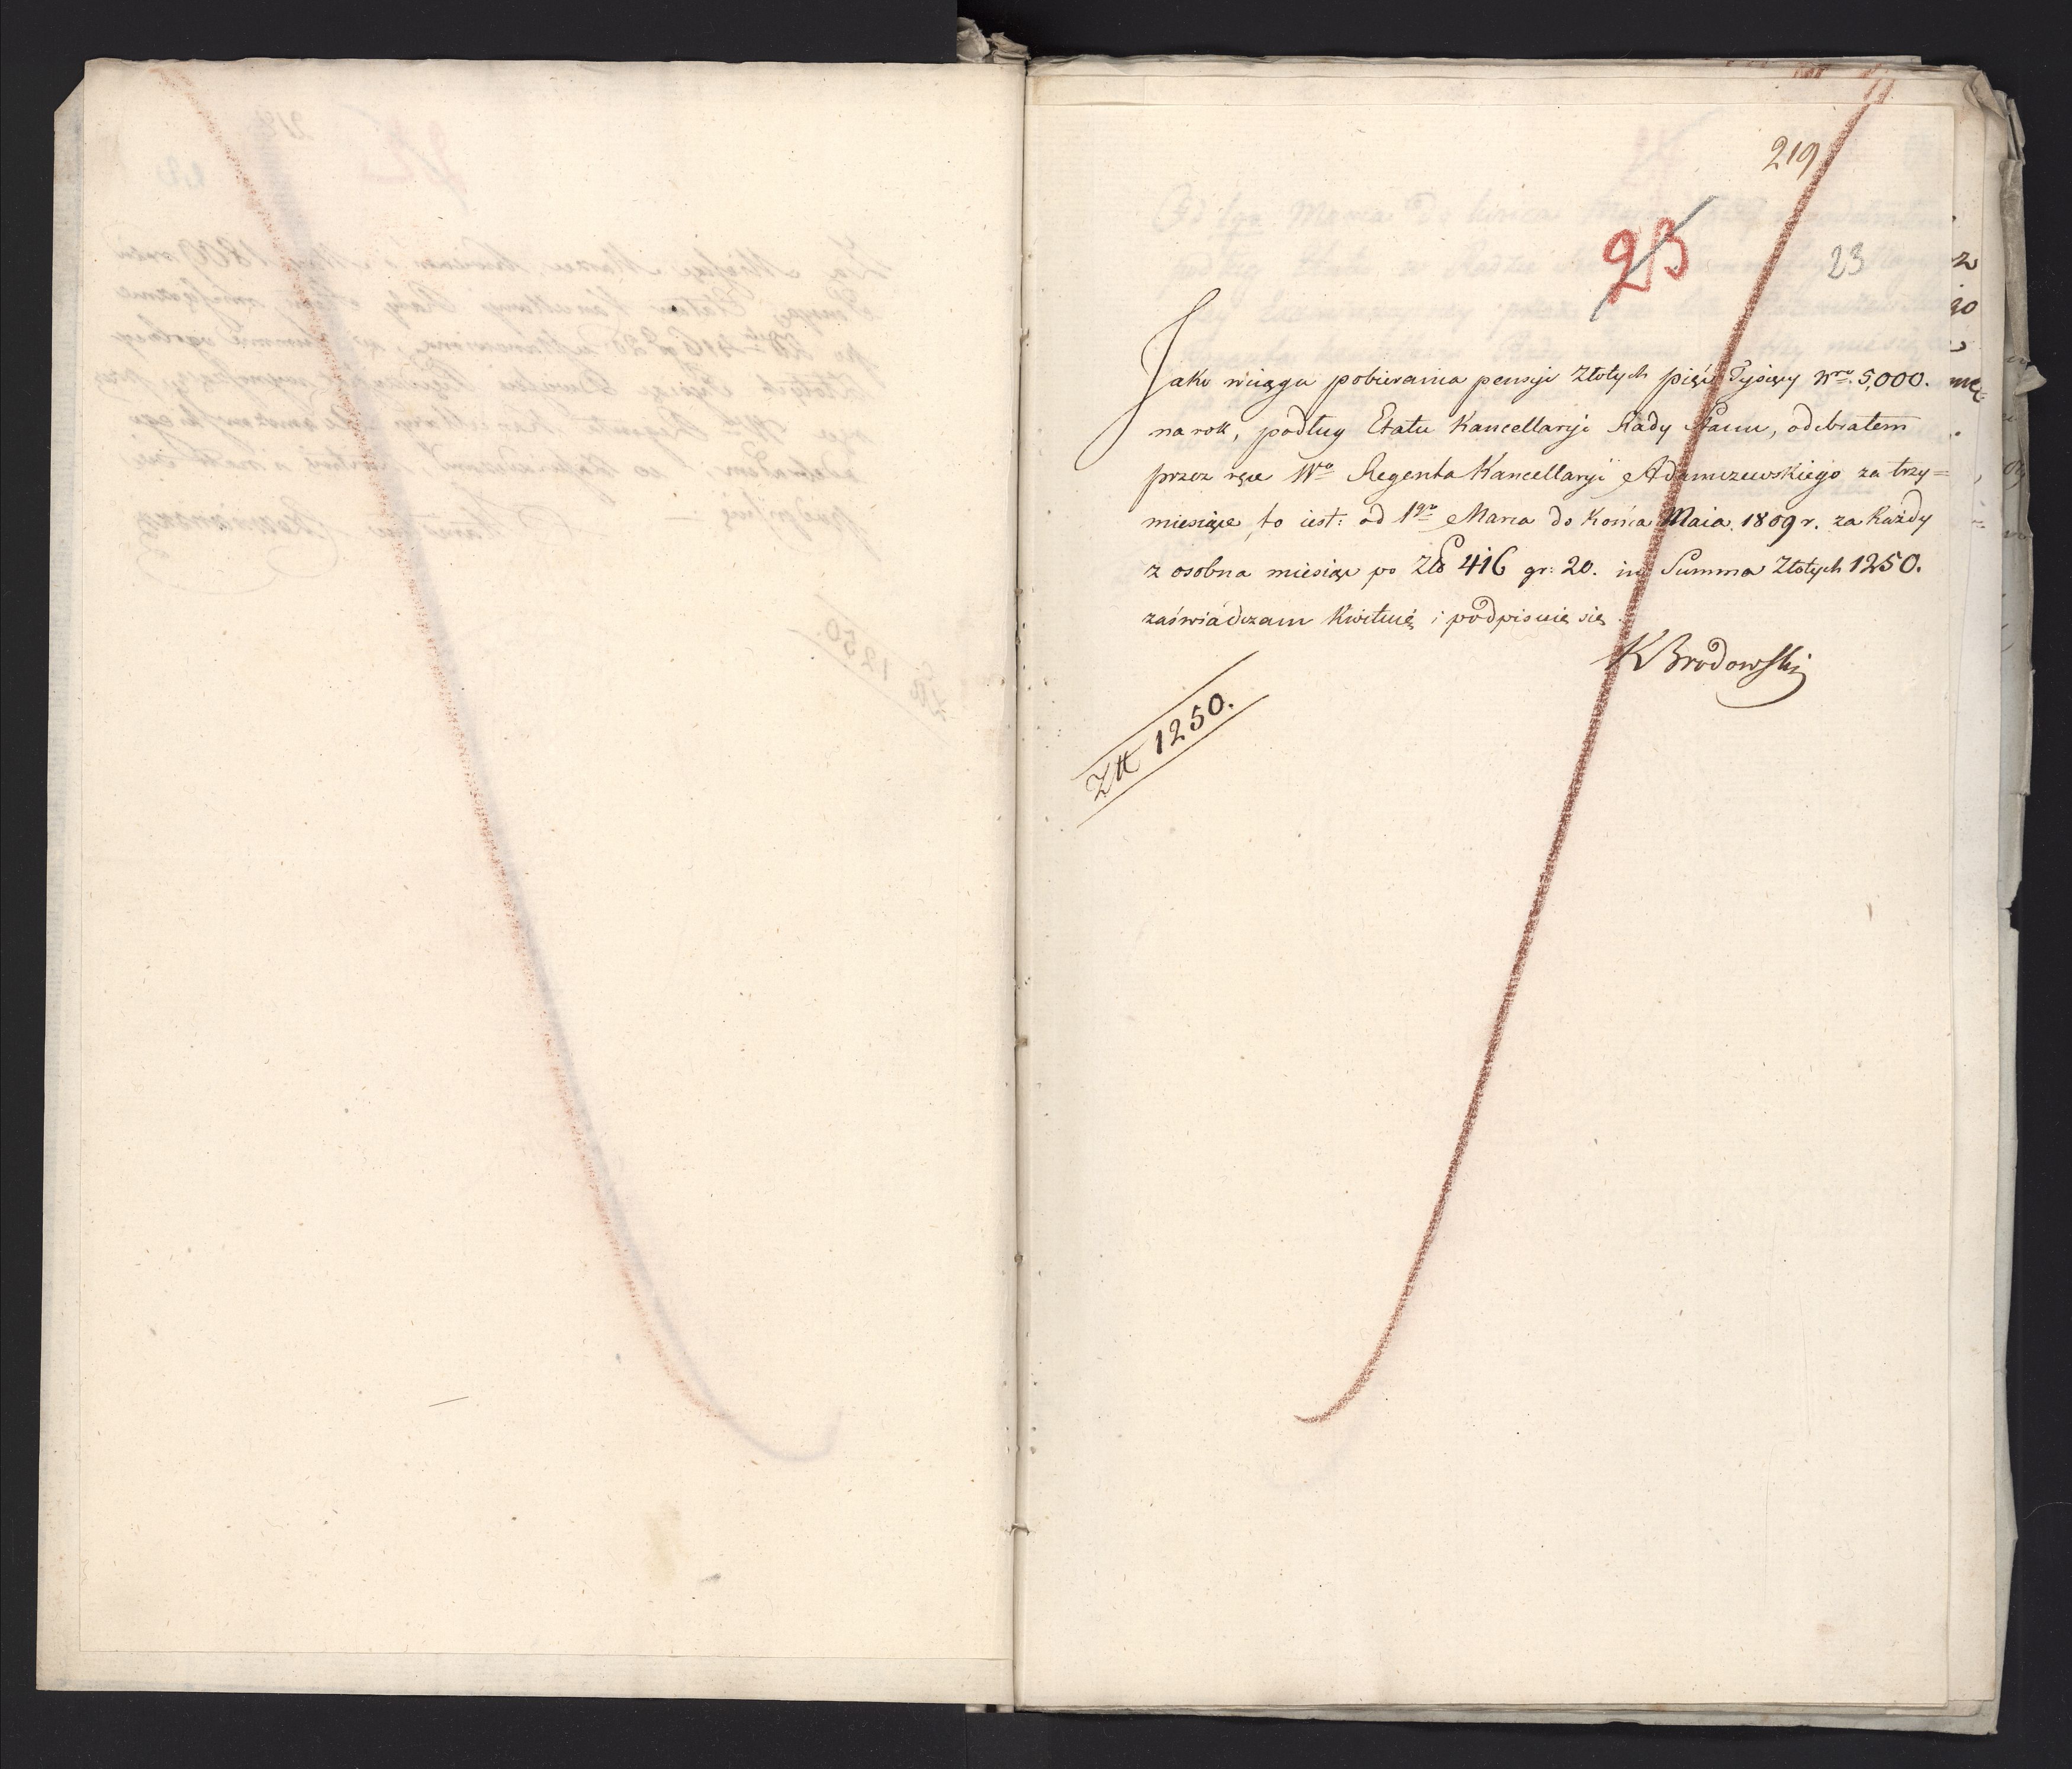 219
23
23
Jako w ciągu pobierania pensyi Złotych pięć Tysięcy Nro. 5,000.
na rok, podług Etatu Kancellaryi Rady Stanu, odebrałem
przez ręce Wo Regenta Kancellaryi Adamczewskiego za trzy=
miesiące, to iest: od 1go Marca do Końca Maia 1809 r. za Każdy
z osobna miesiąc po Złp 416 gr: 20. in Summa Złotych 1250.
zaświadczam Kwituię i podpisuię się
K Brodowski
Złł 1250.